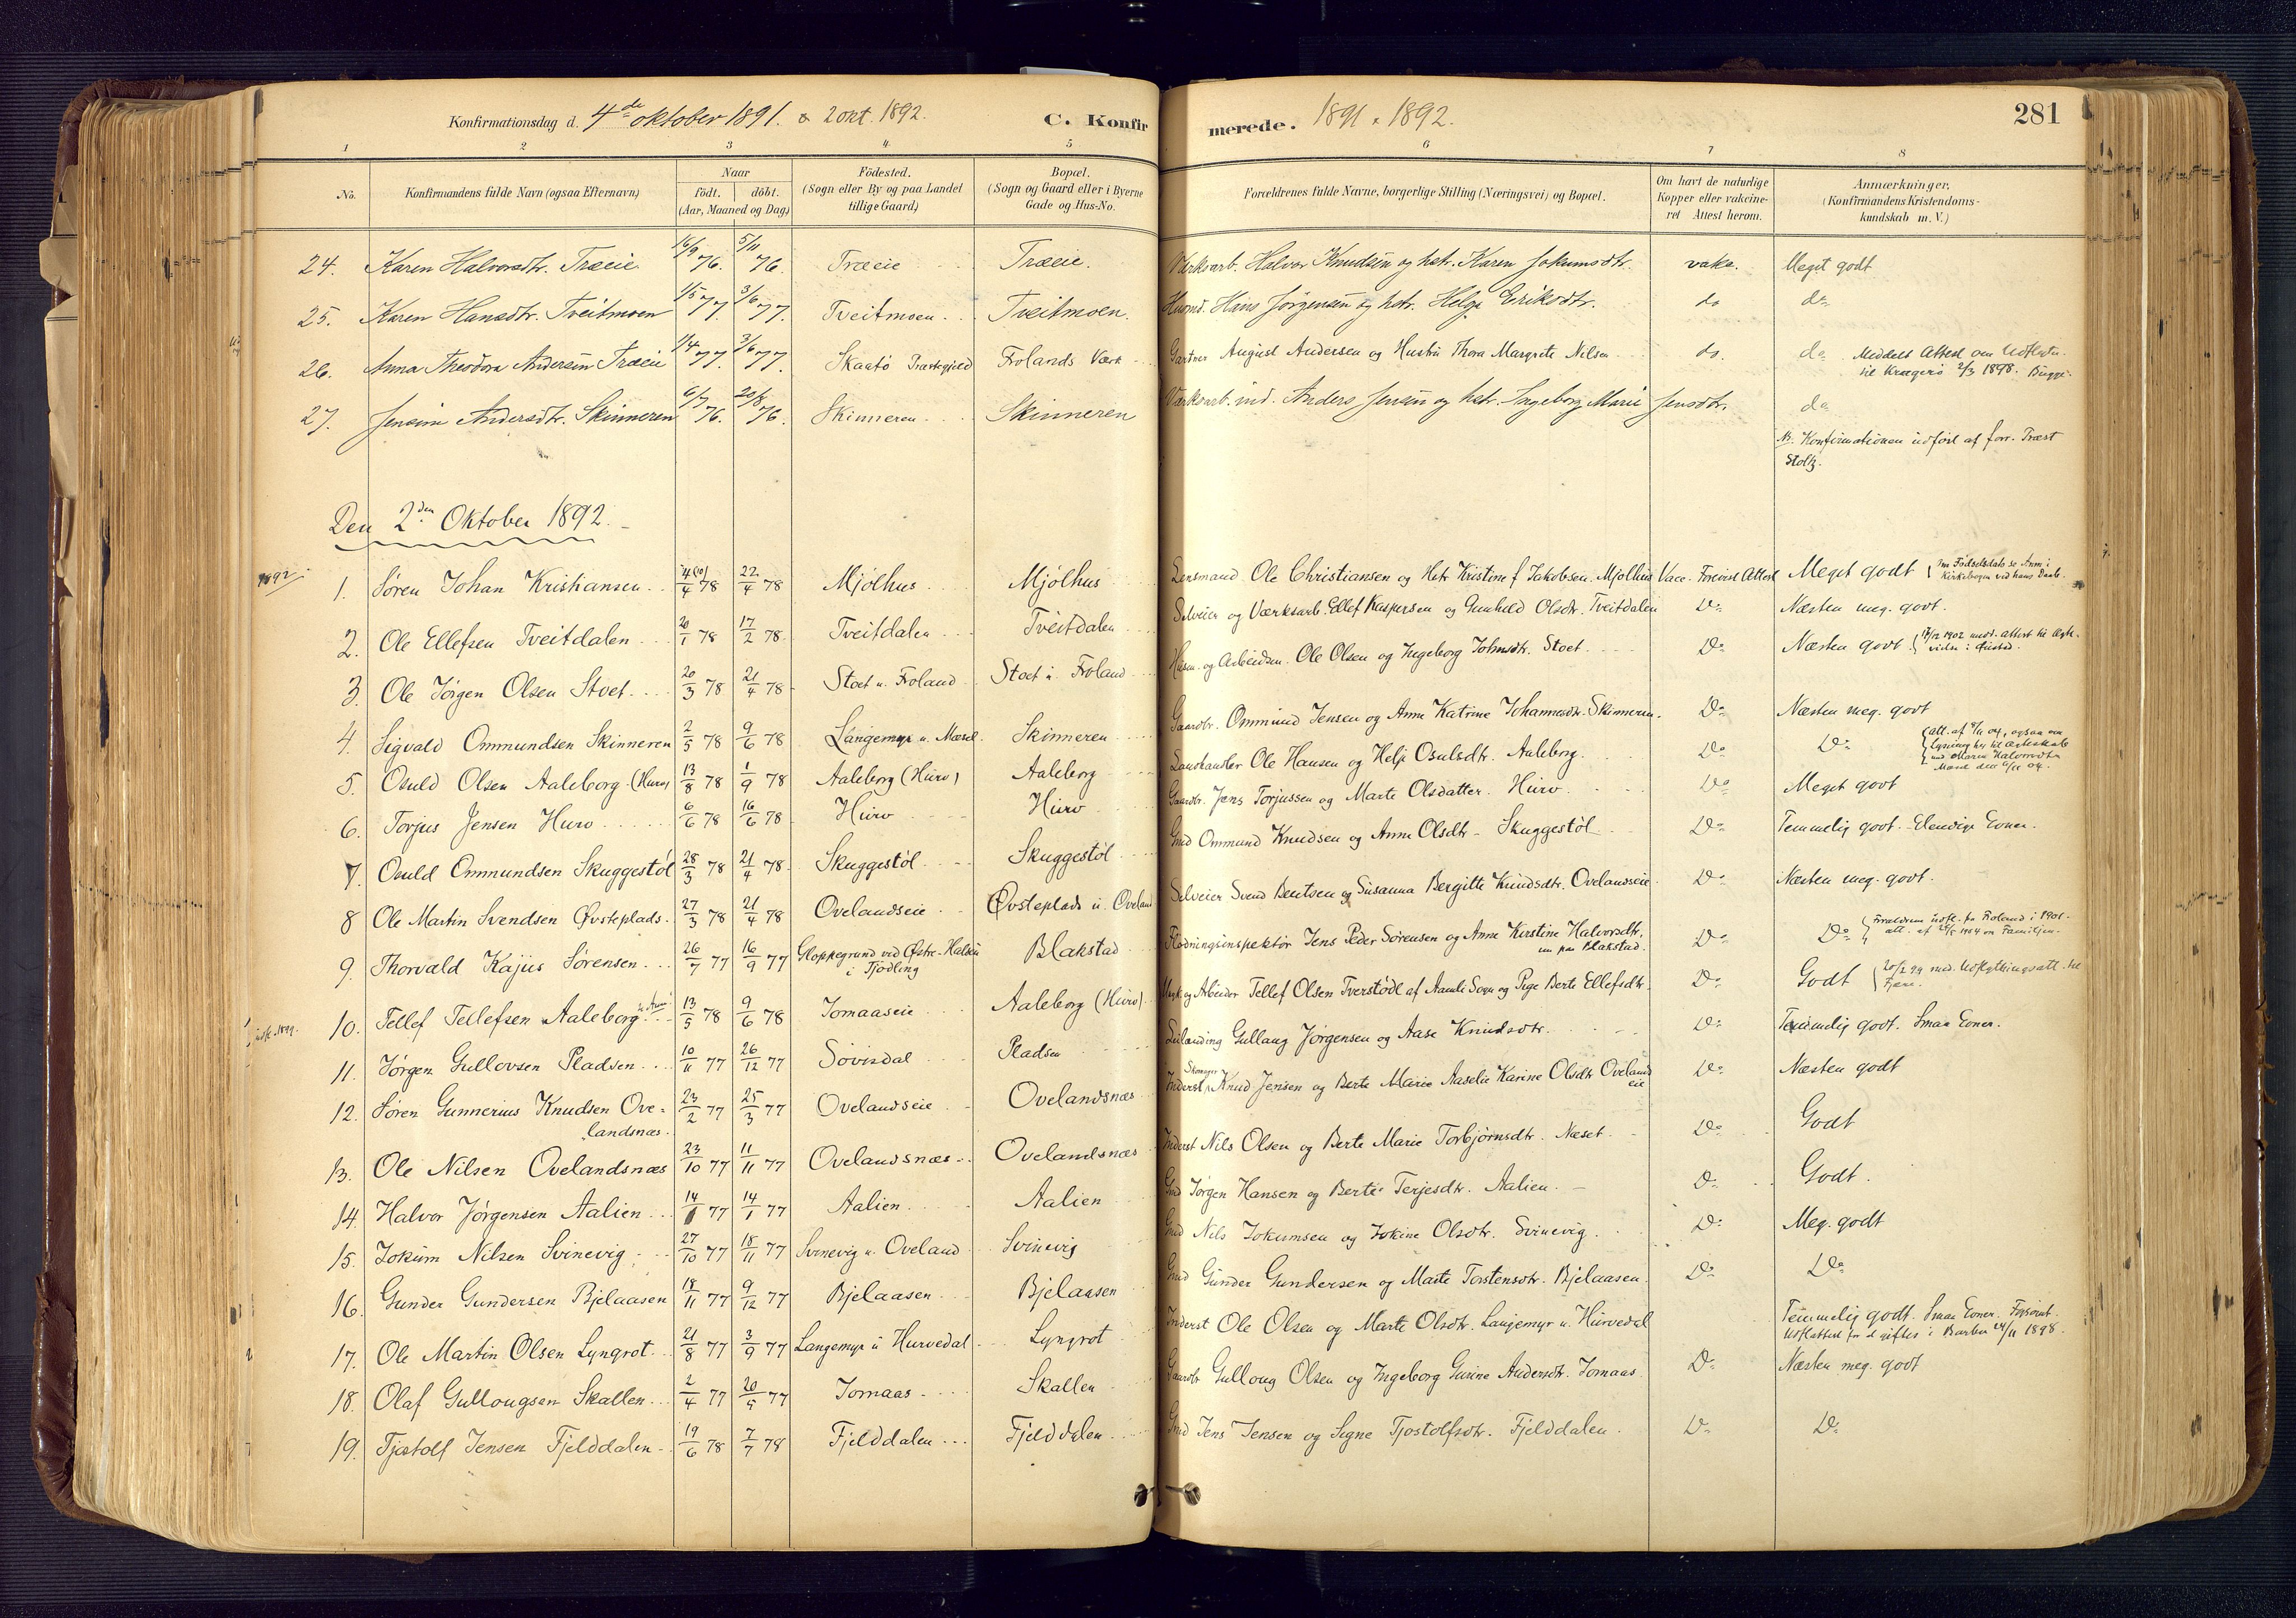 Konfirmationsdag d. 4de oktober 1891. & 2 okt. 1892. C. Konfirmerede. 1891 & 1892. 281
1 2 3 4 5 6 7 8
No. Konfirmandens fulde Navn (ogsaa Efternavn) Naar født. døbt. (Aar, Maaned og Dag) Födested. (Sogn eller By og paa Landet tillige Gaard) Bopæl. (Sogn og Gaard eller i Byerne Gade og Hus-No. Forældrenes fulde Navne, borgerlige Stilling (Næringsvei) og Bopæl. Om havt de naturlige Kopper eller vakcineret Attest herom. Anmærkninger. (Konfirmandens Kristendomskundskab m. V.)
24. Karen Halvorsdtr. Træeie 16/9 76. 5/11 76. Træeie Træeie. Værksarb. Halvor Knudsen og hstr. Karen Jokumsdtr. vakc. Meget godt
25. Karen Hansdtr. Tveitmoen 1/5 77. 3/6 77. Tveitmoen Tveitmoen. Husmd. Hans Jørgensen og hstr. Helga Eriksdtr. do do
26. Anna Theodora Andersen Træeie 1/4 77. 3/6 77. Skaatø Præstegjeld Frolands Værk Gartner August Andersen og Hustru Thora Margrete Nilsen do. do Meddelt Attest om Udflytn. til Kragerø 2/3 1898. Bugge.
27. Jensine Andersdtr. Skinneren 6/7 76. 20/8 76. Skinneren Skinneren Værksarb. ind. Anders Jensen og hstr. Ingeborg Marie Jensdtr. do
Nb. Konfirmationen udført af forr. Præst Stoltz.
Den 2den Oktober 1892.
1892
1. Søren Johan Kristiansen 4(10)/4 78 22/4 78 Mjölhus Mjölhus Lensmand Ole Christiansen og Hstr Kristine f Jakobsen. Mjölhus Vacc. Forevist Attest Meget godt {Om Fødselsdato se Anm i Kirkebogen ved hans Daab.
2. Ole Ellefsen Tveitdalen 20/1 78 17/2 78. Tveitdalen Tveitdalen Selveier og Værksarb. Ellef Kaspersen og Gunhild Olsdtr. Tveitdalen Do Næsten meg. godt.
3. Ole Jörgen Olsen Stoet 20/3 78 21/4 78 Stoet u. Froland Stoet i Froland Husm. og Arbeidsm. Ole Olsen og Ingeborg Johnsdtr. Stoet Do Næsten godt. {17/12 1902 medd. attest til
4. Sigvald Ommundsen Skinneren 2/5 78 9/6 78 Langemyr u. Mæsel. Skinneren Gaardbr. Ommund Jensen og Anne Katrine Johannesdtr. Skinneren. Do Næsten meg. godt
5. Osuld Olsen Aaleborg (Hurv) 13/8 78 1/9 78 Aaleborg (Hurv) Aaleborg Landhandler Ole Hansen og Helje Osulsdtr. Aaleborg. Do Do {att. af 8/11 04, ogsaa om lysning her til ægteskab med Maren Halvorsdtr
6. Torjus Jensen Hurv 6/6 78 16/6 78 Hurv Hurv Gaardbr. Jens Torjussen og Marte Olsdatter. Hurv. Do Meget godt
7. Osuld Ommundsen Skuggestöl 28/3 78 21/4 78 Skuggestöl Skuggestöl Gmd Ommund Knudsen og Anne Olsdtr - Skuggestöl Do Temmelig godt. Elendige Evner.
8 Ole Martin Svendsen Øvsteplads 27/3 78 21/4 78 Ovelandseie Øvsteplads u. Oveland Selveier Svend Bentsen og Susanna Bergitte Knudsdtr. Ovelandseie. Do Næsten meg. godt.
9. Thorvald Kajus Sörensen 26/7 77 16/9 77 Gloppegrund ved Østre-Halsen i Tjödling Blakstad Flødningsinspektør Jens Peder Sörensen og Anne Kirstine Halvorsdtr, nu paa Blakstad. Do Do {Forældrene udfl. fra Froland i 1901.
10. Tellef Tellefsen Aaleborg 13/5 78 9/6 78 Jomaaseie Aaleborg (Hurv) og Arbeider Tellef Olsen Tverstödl af Aamli Sogn og Pige Berte Ellefsdtr. Do Godt {20/2 99 med. Udflytningsatt. til
11. Jörgen Gullovsen Pladsen 10/11 77 26/12 77 Sövisdal Pladsen Leilænding Gullaug Jörgensen og Aase Knudsdtr. Do Temmelig godt. Smaa Evner.
12. Sören Gunnerius Knudsen Ovelandsnæs. 23/2 77 25/3 77 Ovelandseie Ovelandsnæs Inderst Knud Jensen og Berte Marie Aaselie Karine Olsdtr Ovelandeie Do Næsten godt
13. Ole Nilsen Ovelandsnæs 23/10 77 11/11 77 Ovelandsnæs Ovelandsnæs Inderst Nils Olsen og Berte Marie Torbjörnsdtr. Næset. Do Godt
14. Halvor Jörgensen Aalien 14/1 77 14/1 77 Aalien Aalien Gmd Jörgen Hansen og Berte Terjesdtr. Aalien. Do Godt.
15. Jokum Nilsen Svinevig 27/10 77 18/11 77 Svinevig u. Oveland Svinevig Gmd Nils Jokumsen og Jokine Olsdtr. Svinevig. Do Meg. godt
16. Gunder Gundersen Bjelaasen 18/11 77 9/12 77 Bjelaasen Bjelaasen Gmd Gunder Gundersen og Marte Torstensdtr. Bjelaasen. Do Do
17. Ole Martin Olsen Lyngrot 21/8 77 3/9 77 Langemyr u Hurvedal Lyngrot Inderst Ole Olsen og Marte Olsdtr. Langemyr u. Hurvedal Temmelig godt. Smaa Evner. Forsömt. Udfl.attest for at giftes i Barbu 24/11 1898.
18. Olaf Gullougsen Skallen 2/4 77 20/5 77 Jomaas Skallen Gaardbr Gulloug Olsen og Ingeborg Gurine Andersdtr. Jomaas. Do Næsten meg. godt
19. Tjostolf Jensen Fjelddalen 19/6 78 7/7 78 Fjelddalen Fjelddalen Gmd Jens Jensen og Signe Tjostolfsdtr. Fjelddalen. Do Do